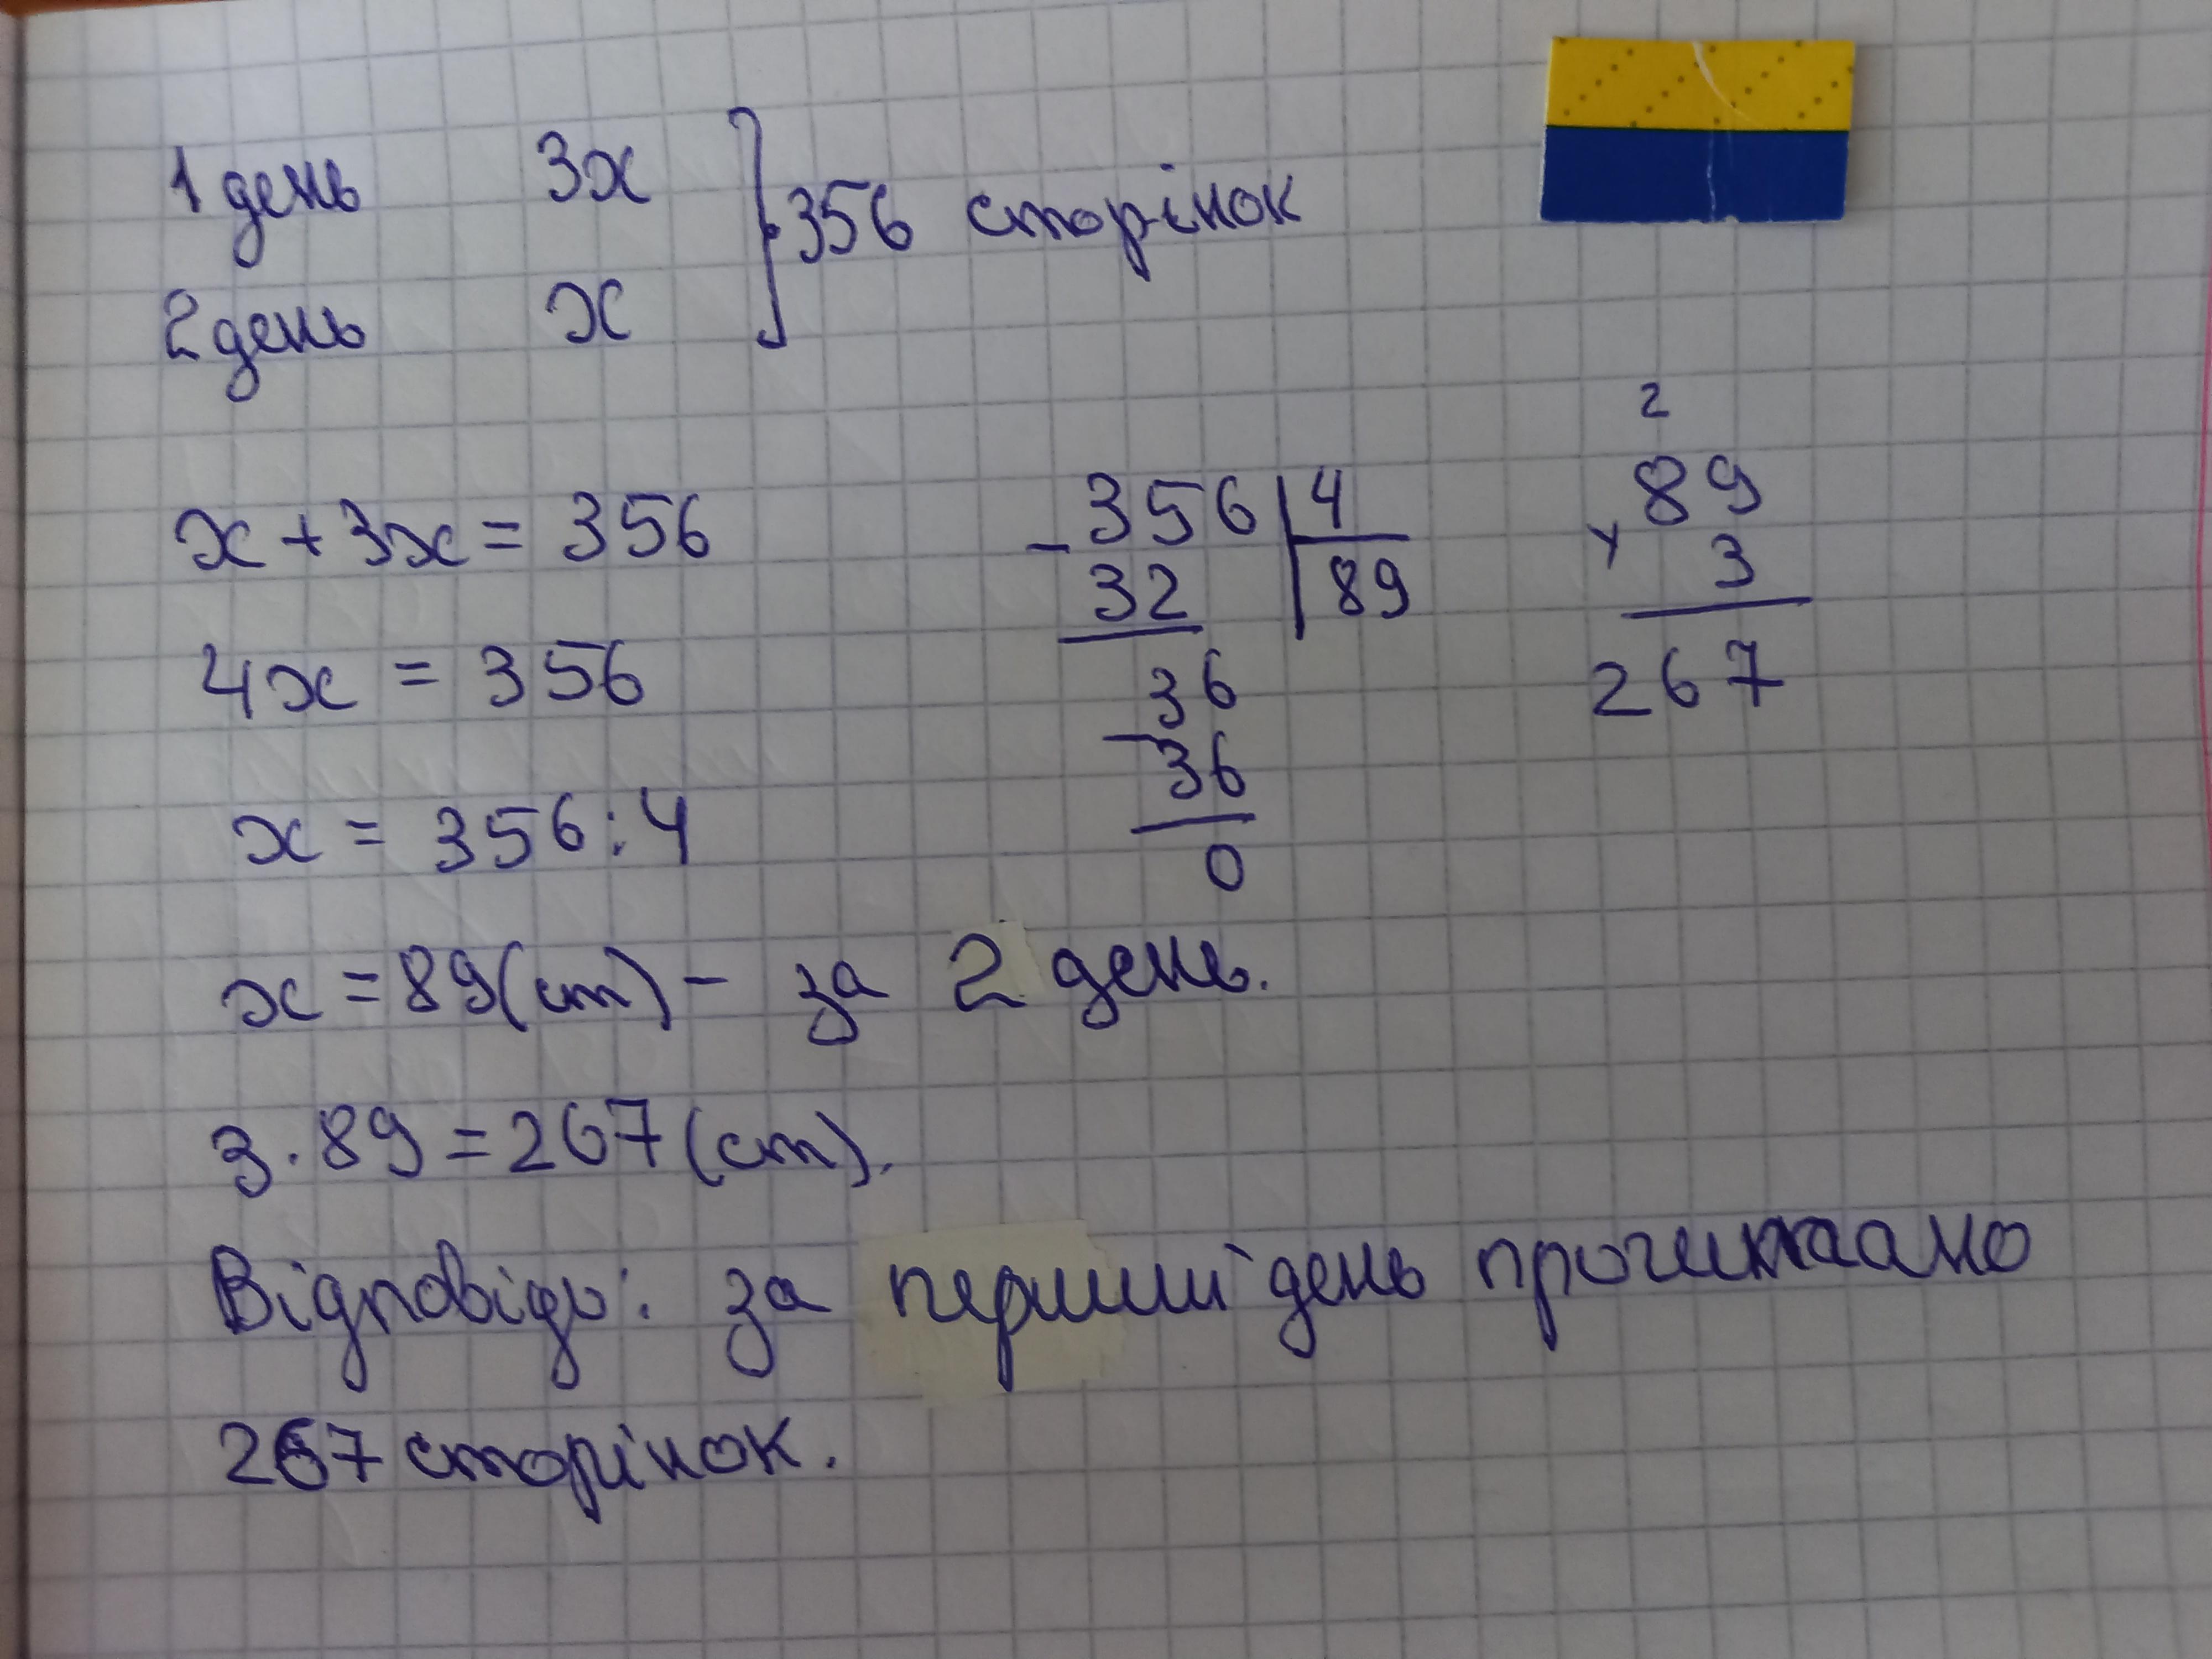 1 день 3x
356 сторінок
2 день x
x + 3x = 356
4x = 356
x = 356 : 4
x = 89 (ст) - за 2 день.
3 · 89 = 267 (ст).
Відповідь: за перший день прочитано
267 сторінок.
- 356 | 4
32 | 89
- 36
36
0
2
89
× 3
267